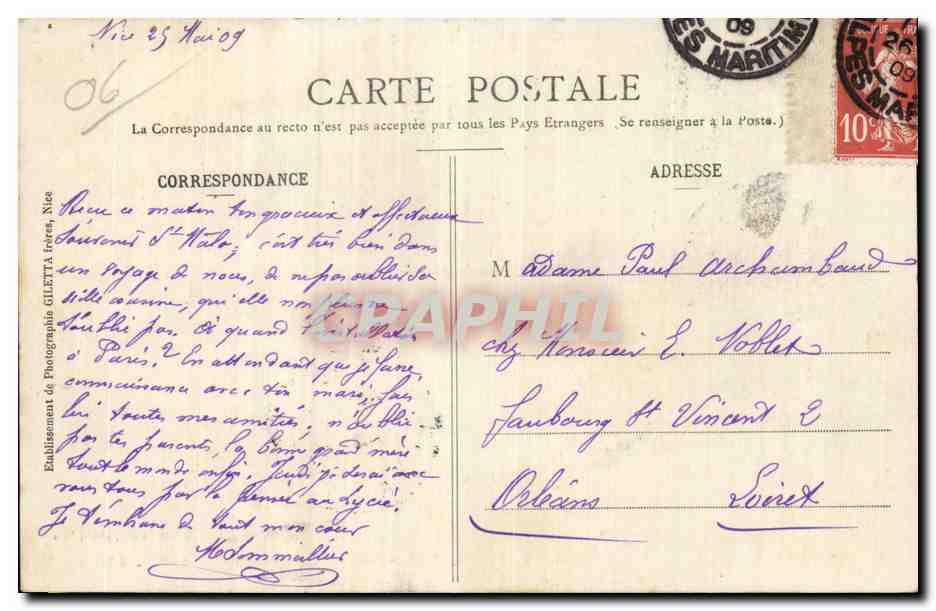 Nice 25 Mai 09
06
09
ES MARITIM
26
09
PES MAR
10c
CARTE POSTALE
La Correspondance au recto n'est pas acceptée par tous les Pays Etrangers (Se renseigner à la Poste.)
CORRESPONDANCE
Reçu ce matin ton gracieux et affectueux
souvenir St Malo; c'est très bien dans
un voyage de noces, de ne pas oublier sa
vieille cousine, qui elle non plus ne
t'oublie pas. Et quand
à Paris? En attendant que je fasse
connaissance avec ton mari, fais
lui toutes mes amitiés, n'oublie
pas tes parents, la bonne grand mère
tout le monde enfin. Jeudi je serai avec
vous tous par la pensée au Lycée.
Je t'embrasse de tout mon cœur
M Sommeillier
Etablissement de Photographie GILETTA frères, Nice
ADRESSE
Madame Paul Archambaud
chez Monsieur E. Noblet
faubourg St Vincent 2
Orléans Loiret
CPAPHIL